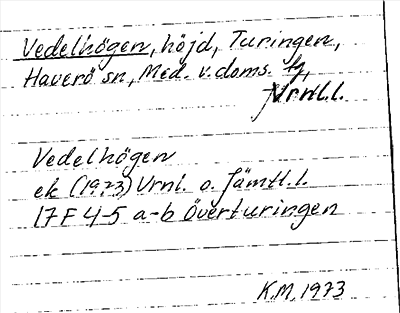 Vedelhögen, höjd, Turingen,
Haverö sn, Med. v. doms. tg,
Vrnl.l.
Vedelhögen
ek (1973) Vrnl. o. Jämtl.l.
17 F 4-5 a-b Överturingen
K.M. 1973